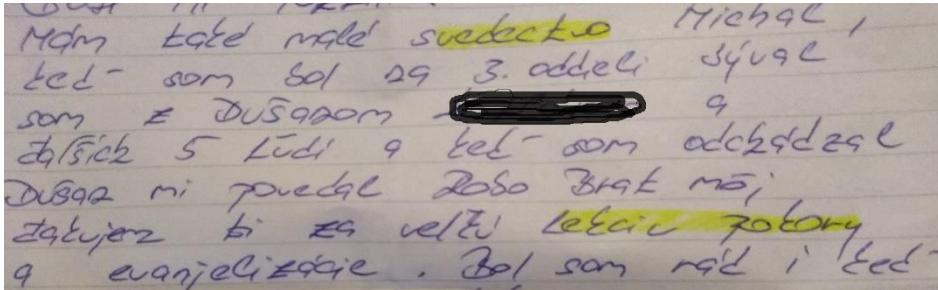 Mám také malé svedectvo Michal,
keď som bol na 3. oddeli býval
som z Dušanom a
ďalších 5 ľudí a keď som odchádzal
Dušan mi povedal Robo Brat môj
ďakujem ti za veľkú lekciu pokory
a evanjelizácie. Bol som rád i keď